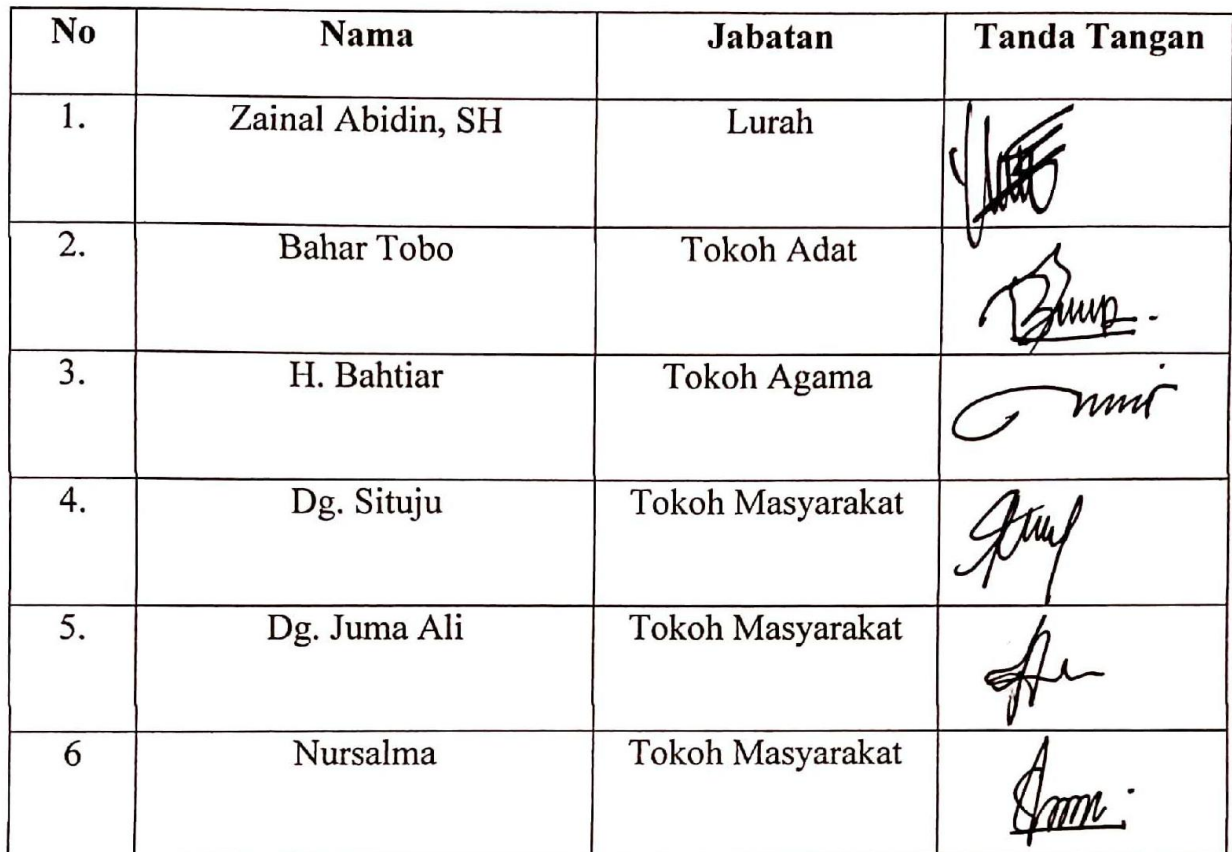 No Nama Jabatan Tanda Tangan
1. Zainal Abidin, SH Lurah
2. Bahar Tobo Tokoh Adat
3. H. Bahtiar Tokoh Agama
4. Dg. Situju Tokoh Masyarakat
5. Dg. Juma Ali Tokoh Masyarakat
6 Nursalma Tokoh Masyarakat